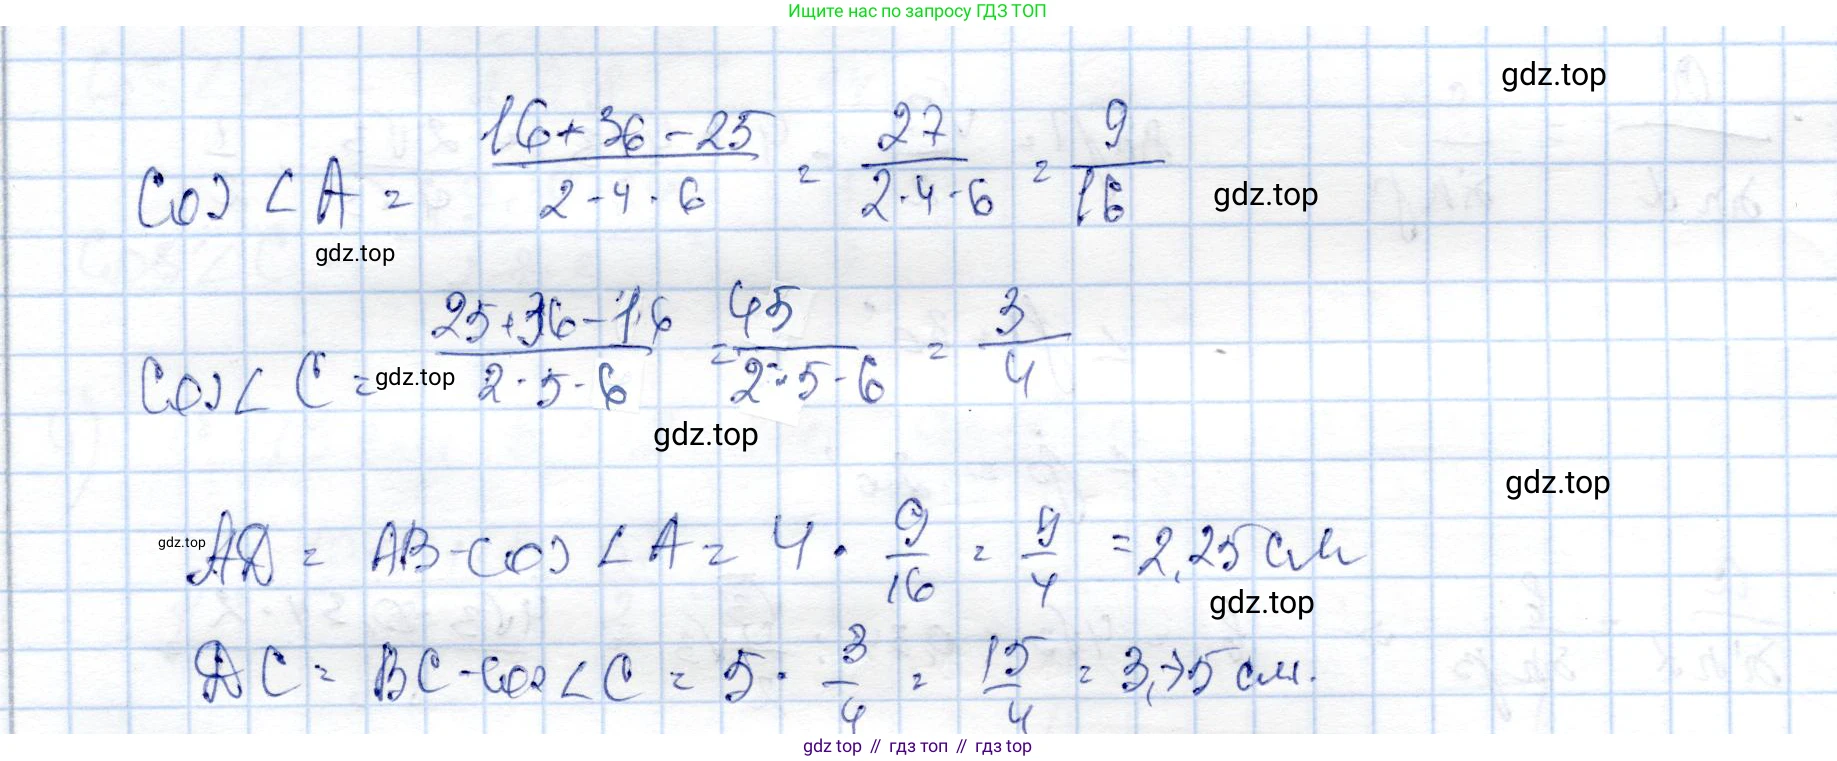 Ищите нас по запросу ГДЗ ТОП
gdz.top
cos ∠A = (16+36-25)/(2·4·6) = 27/(2·4·6) = 9/16
gdz.top
gdz.top
cos∠C = (25+36-16)/(2·5·6) = 45/(2·5·6) = 3/4
gdz.top
gdz.top
gdz.top
AD = AB·cos∠A = 4·9/16 = 9/4 = 2,25 см
gdz.top
gdz.top
DC = BC·cos∠C = 5·3/4 = 15/4 = 3,75 см.
gdz top // гдз топ // гдз top